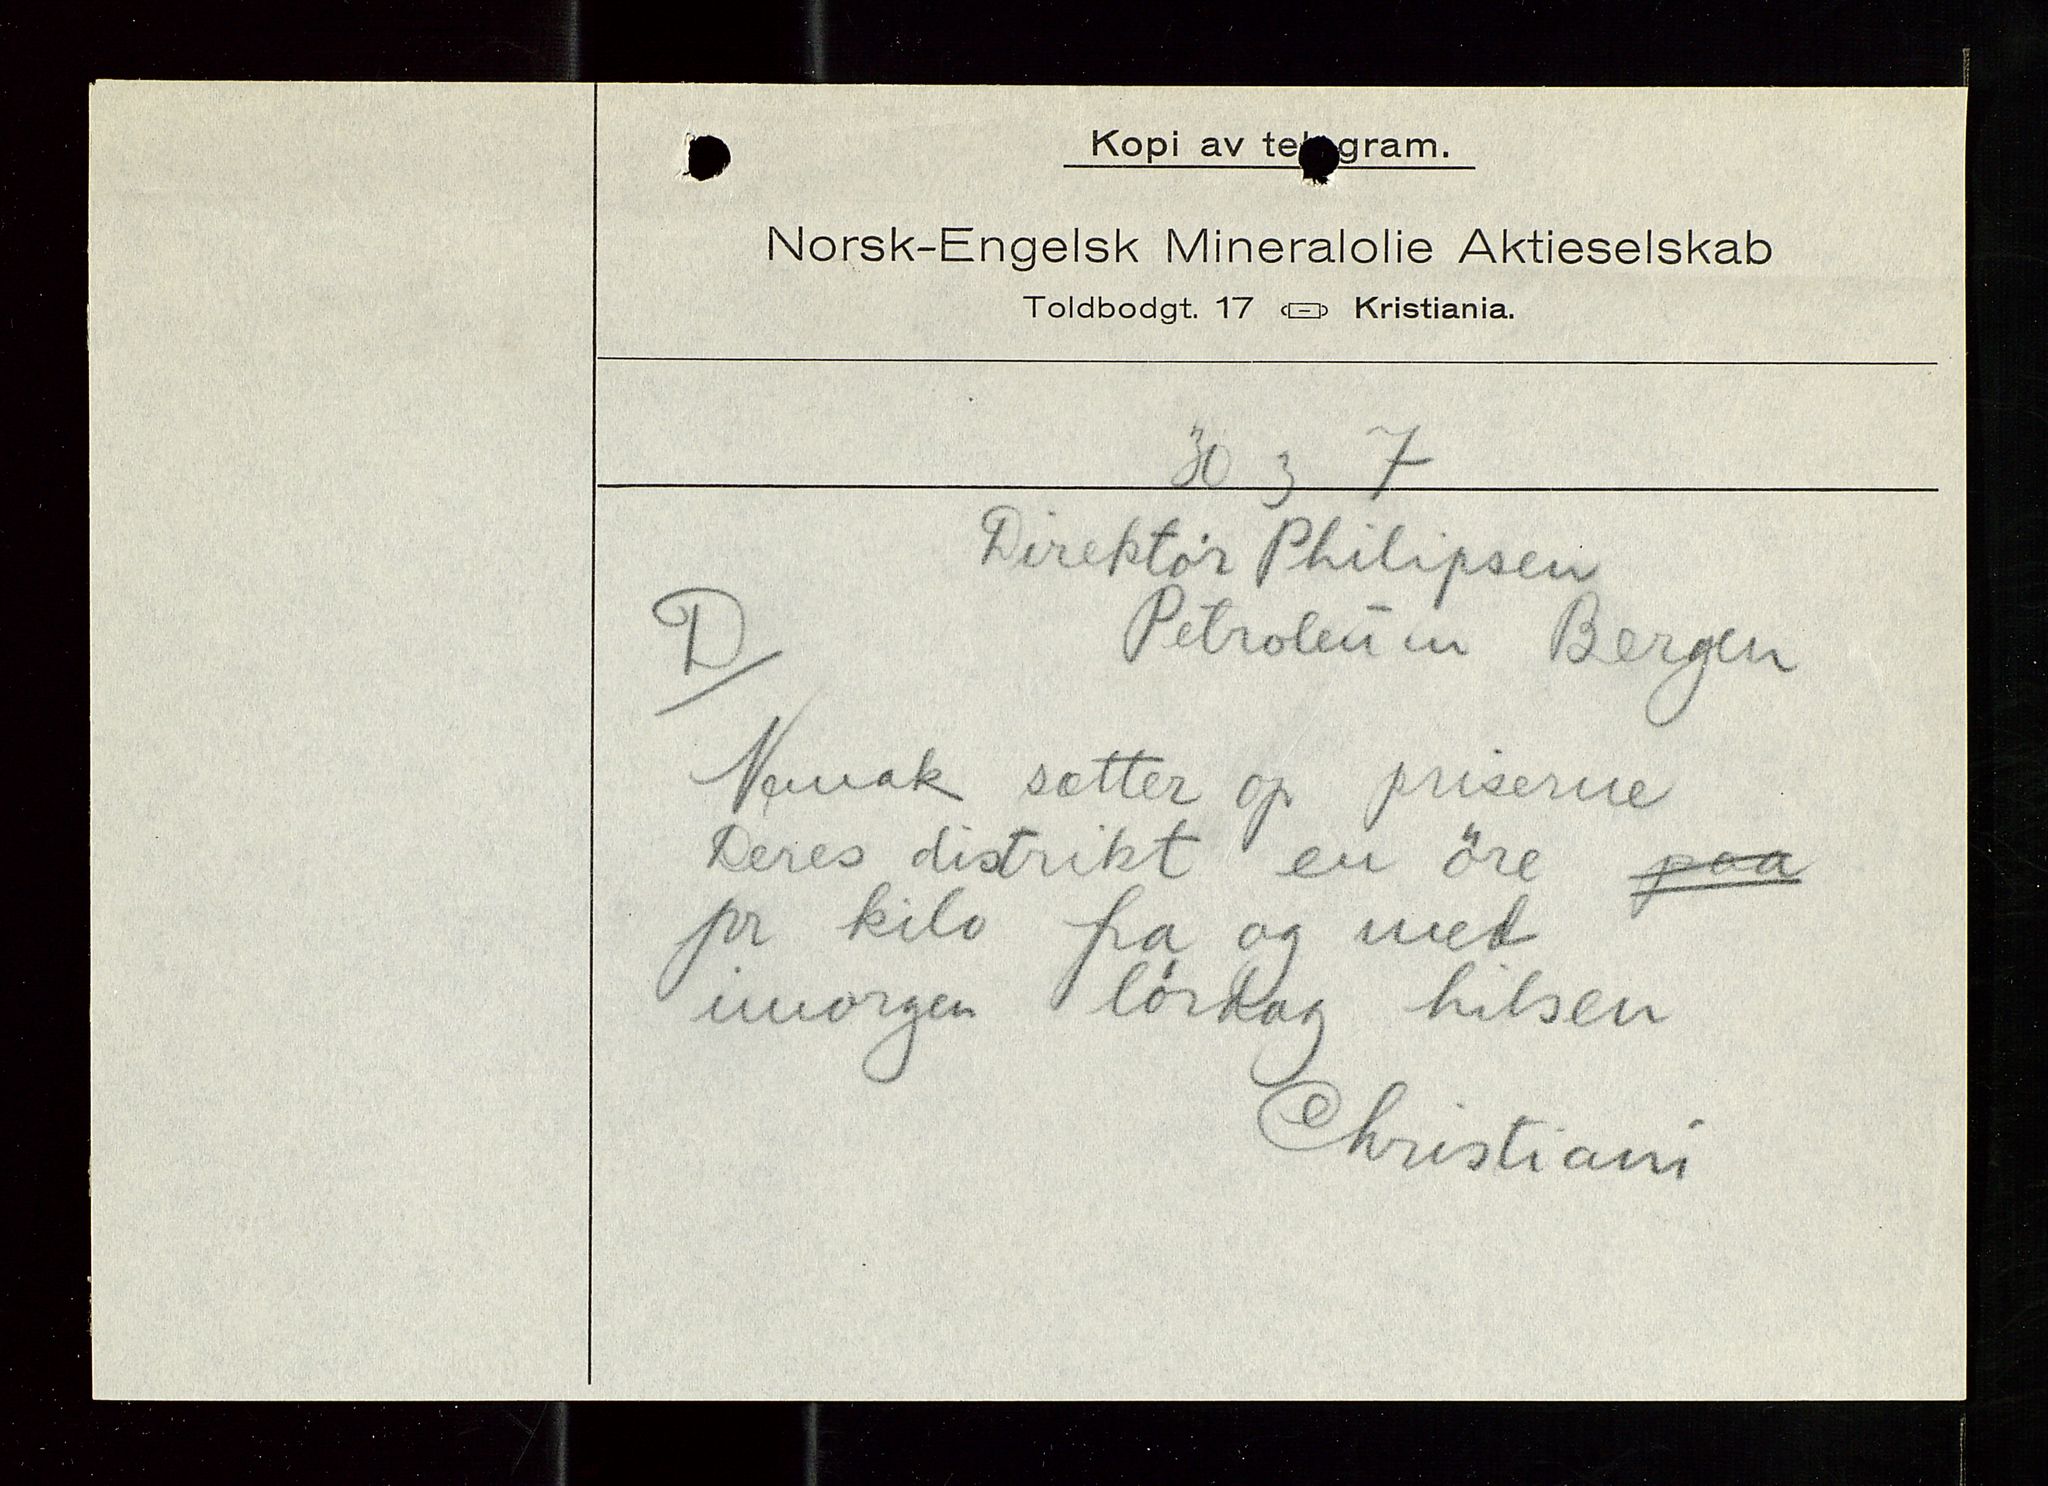 Kopi av telegram.
Norsk-Engelsk Mineralolie Aktieselskab
Toldbodgt. 17 Kristiania.
30 3 7
Direktör Philipsen
Petroleum Bergen
D
Nemak sætter op priserne
Deres distrikt en öre paa
pr kilo fra og med
imorgen lördag hilsen
Christiani